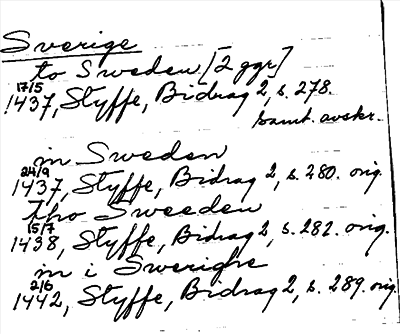 Sverige
to Sweden [2 ggr]
17/5
1437, Styffe, Bidrag 2, s. 278.
samt. avskr.
in Sweden
24/9
1437, Styffe, Bidrag 2, s. 280. orig.
tho Sweeden
15/7
1438, Styffe, Bidrag 2, s. 282. orig.
in i Swerighe
2/6
1442, Styffe, Bidrag 2, s. 289. orig.